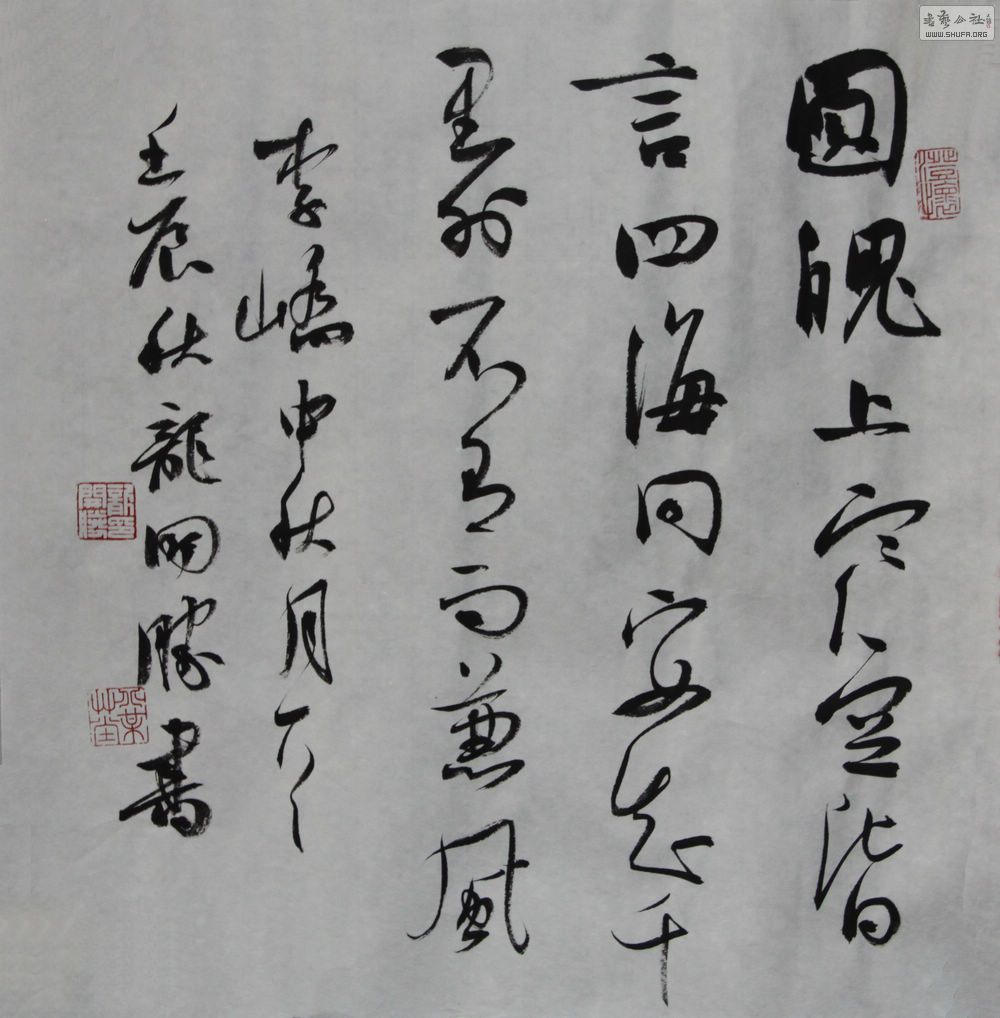 圓魄上寒空皆
言四海同安知千
里外不有雨兼風
李嶠中秋月
壬辰秋龍開勝書
書藝公社
WWW.SHUFA.ORG